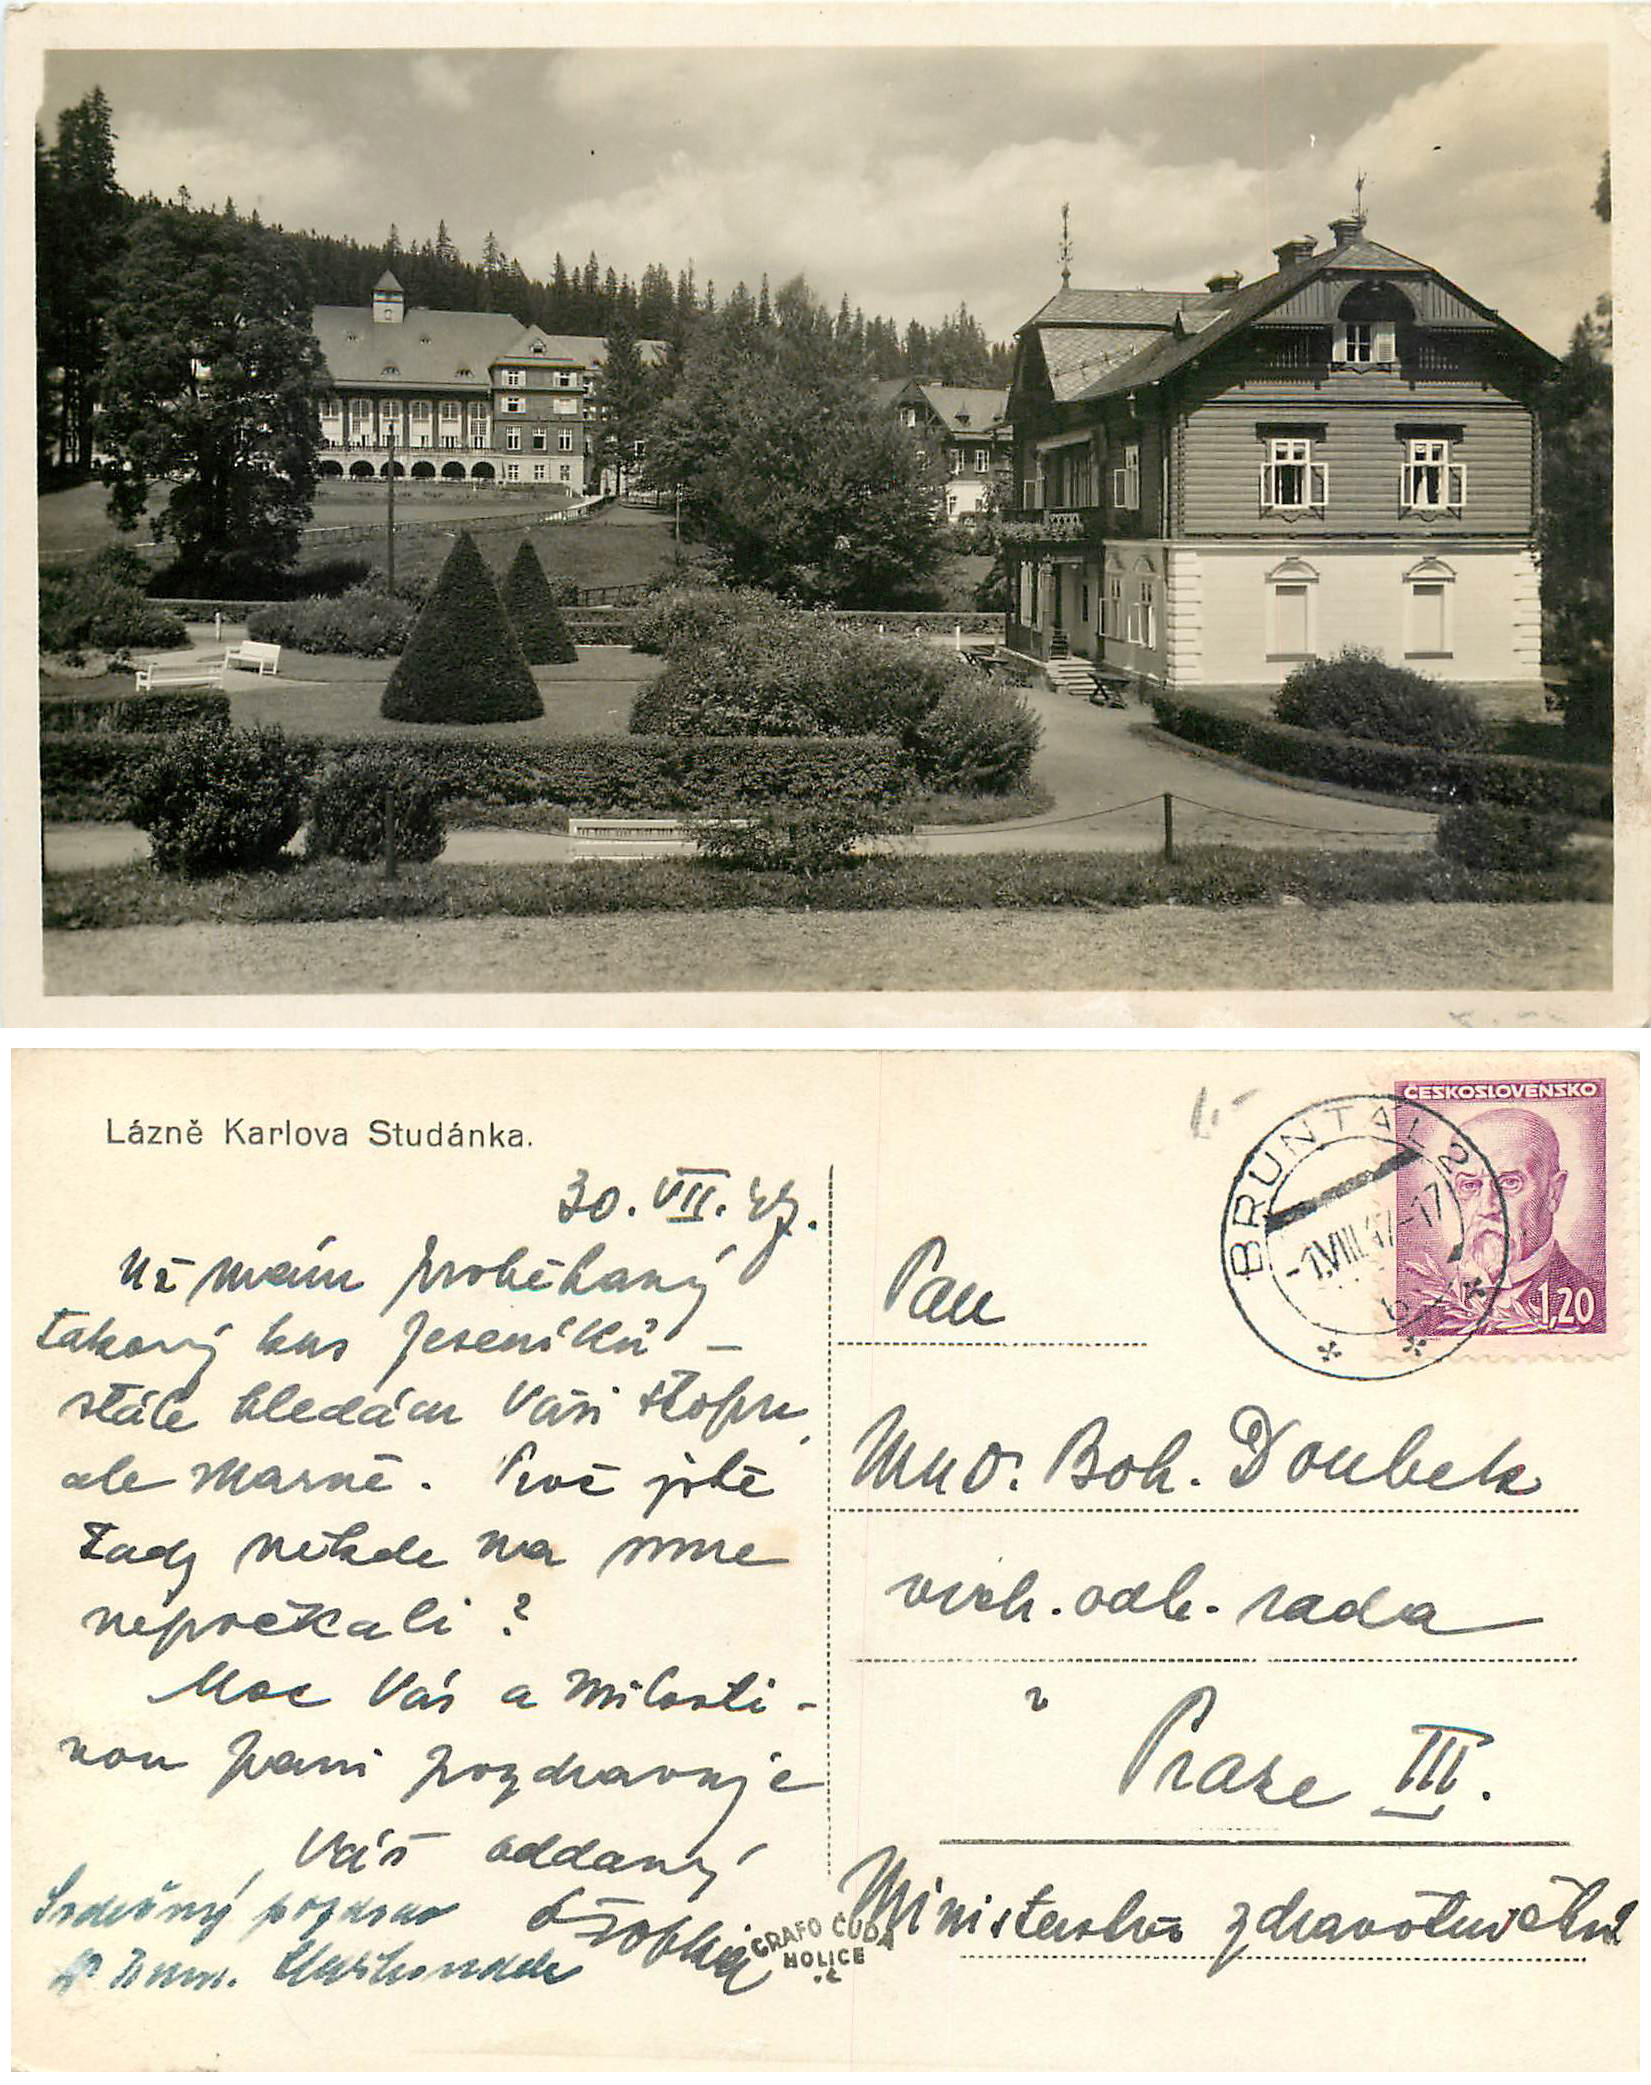 Lázně Karlova Studánka.
30. VII. 47.
Už mám proběhaný
takový kus Jeseníků –
stále hledám Vaši stopu,
ale marně. Proč jste
tady někde na mne
nepočkali?
Moc Vás a milosti-
vou paní pozdravuje
Váš oddaný
Srdečný pozdrav
ČESKOSLOVENSKO
1,20
BRUNTÁL 2
-1.VIII.47-17
Pan
MUD. Boh. Doubek
vrch. odb. rada
v
Praze III.
Ministerstvo zdravotnictví
GRAFO ČUDA
HOLICE